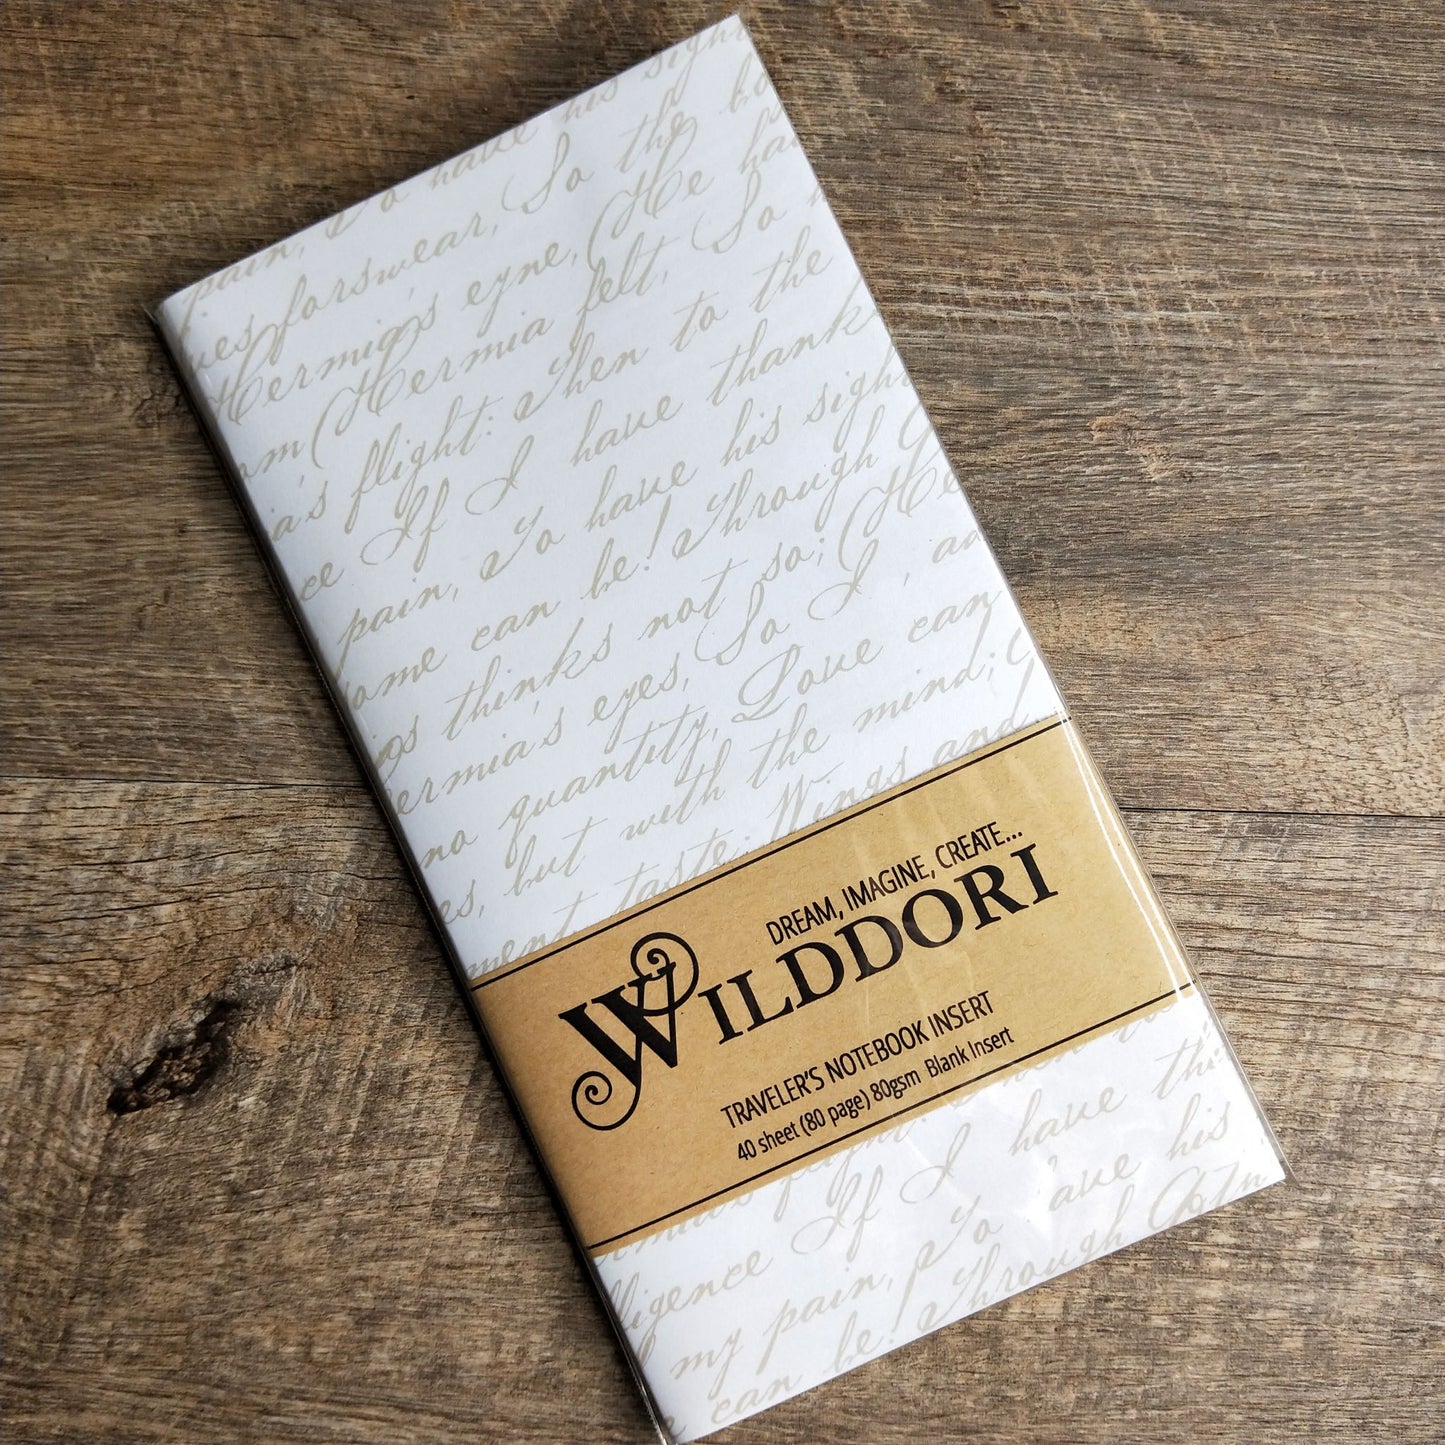 sight
pain, To have his
forswear, So the bo
Hermia's eyne, He ha
Hermia felt, So
flight: Then to the
ce If I have thank
pain, To have his sight
ome can be! Through
thinks not so; He
ermia's eyes, So I, ad
no quantity, Love can
es, but with the mind;
ment taste; Wings and
DREAM, IMAGINE, CREATE...
WILDDORI
TRAVELER'S NOTEBOOK INSERT
40 sheet (80 page) 80gsm Blank Insert
lligence If I have thi
my pain, To have his
can be! Through